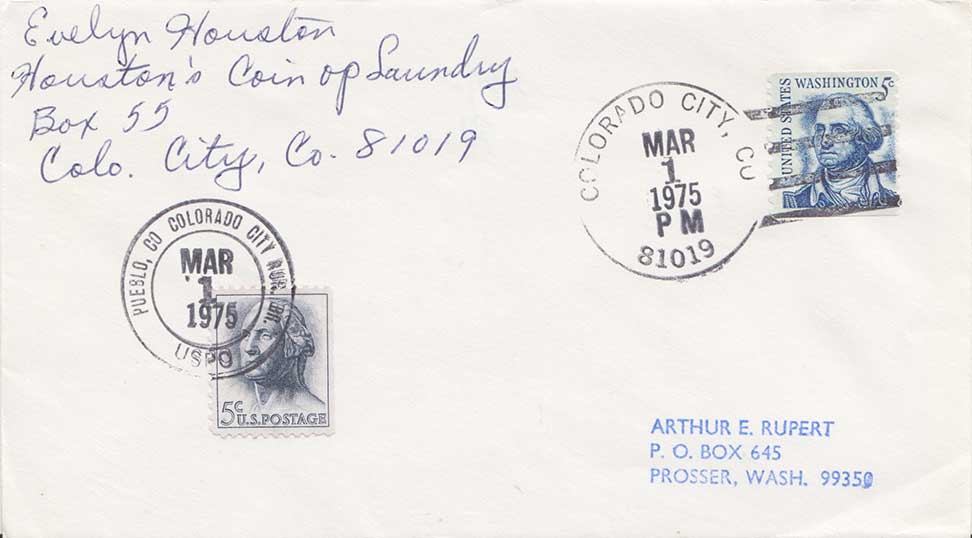 Evelyn Houston
Houston's Coin op Laundry
Box 55
Colo. City, Co. 81019
COLORADO CITY, CO
MAR
1
1975
PM
81019
UNITED STATES
WASHINGTON 5c
PUEBLO, CO COLORADO CITY RUR. BR.
MAR
1
1975
USPO
5c
U.S. POSTAGE
ARTHUR E. RUPERT
P. O. BOX 645
PROSSER, WASH. 99350